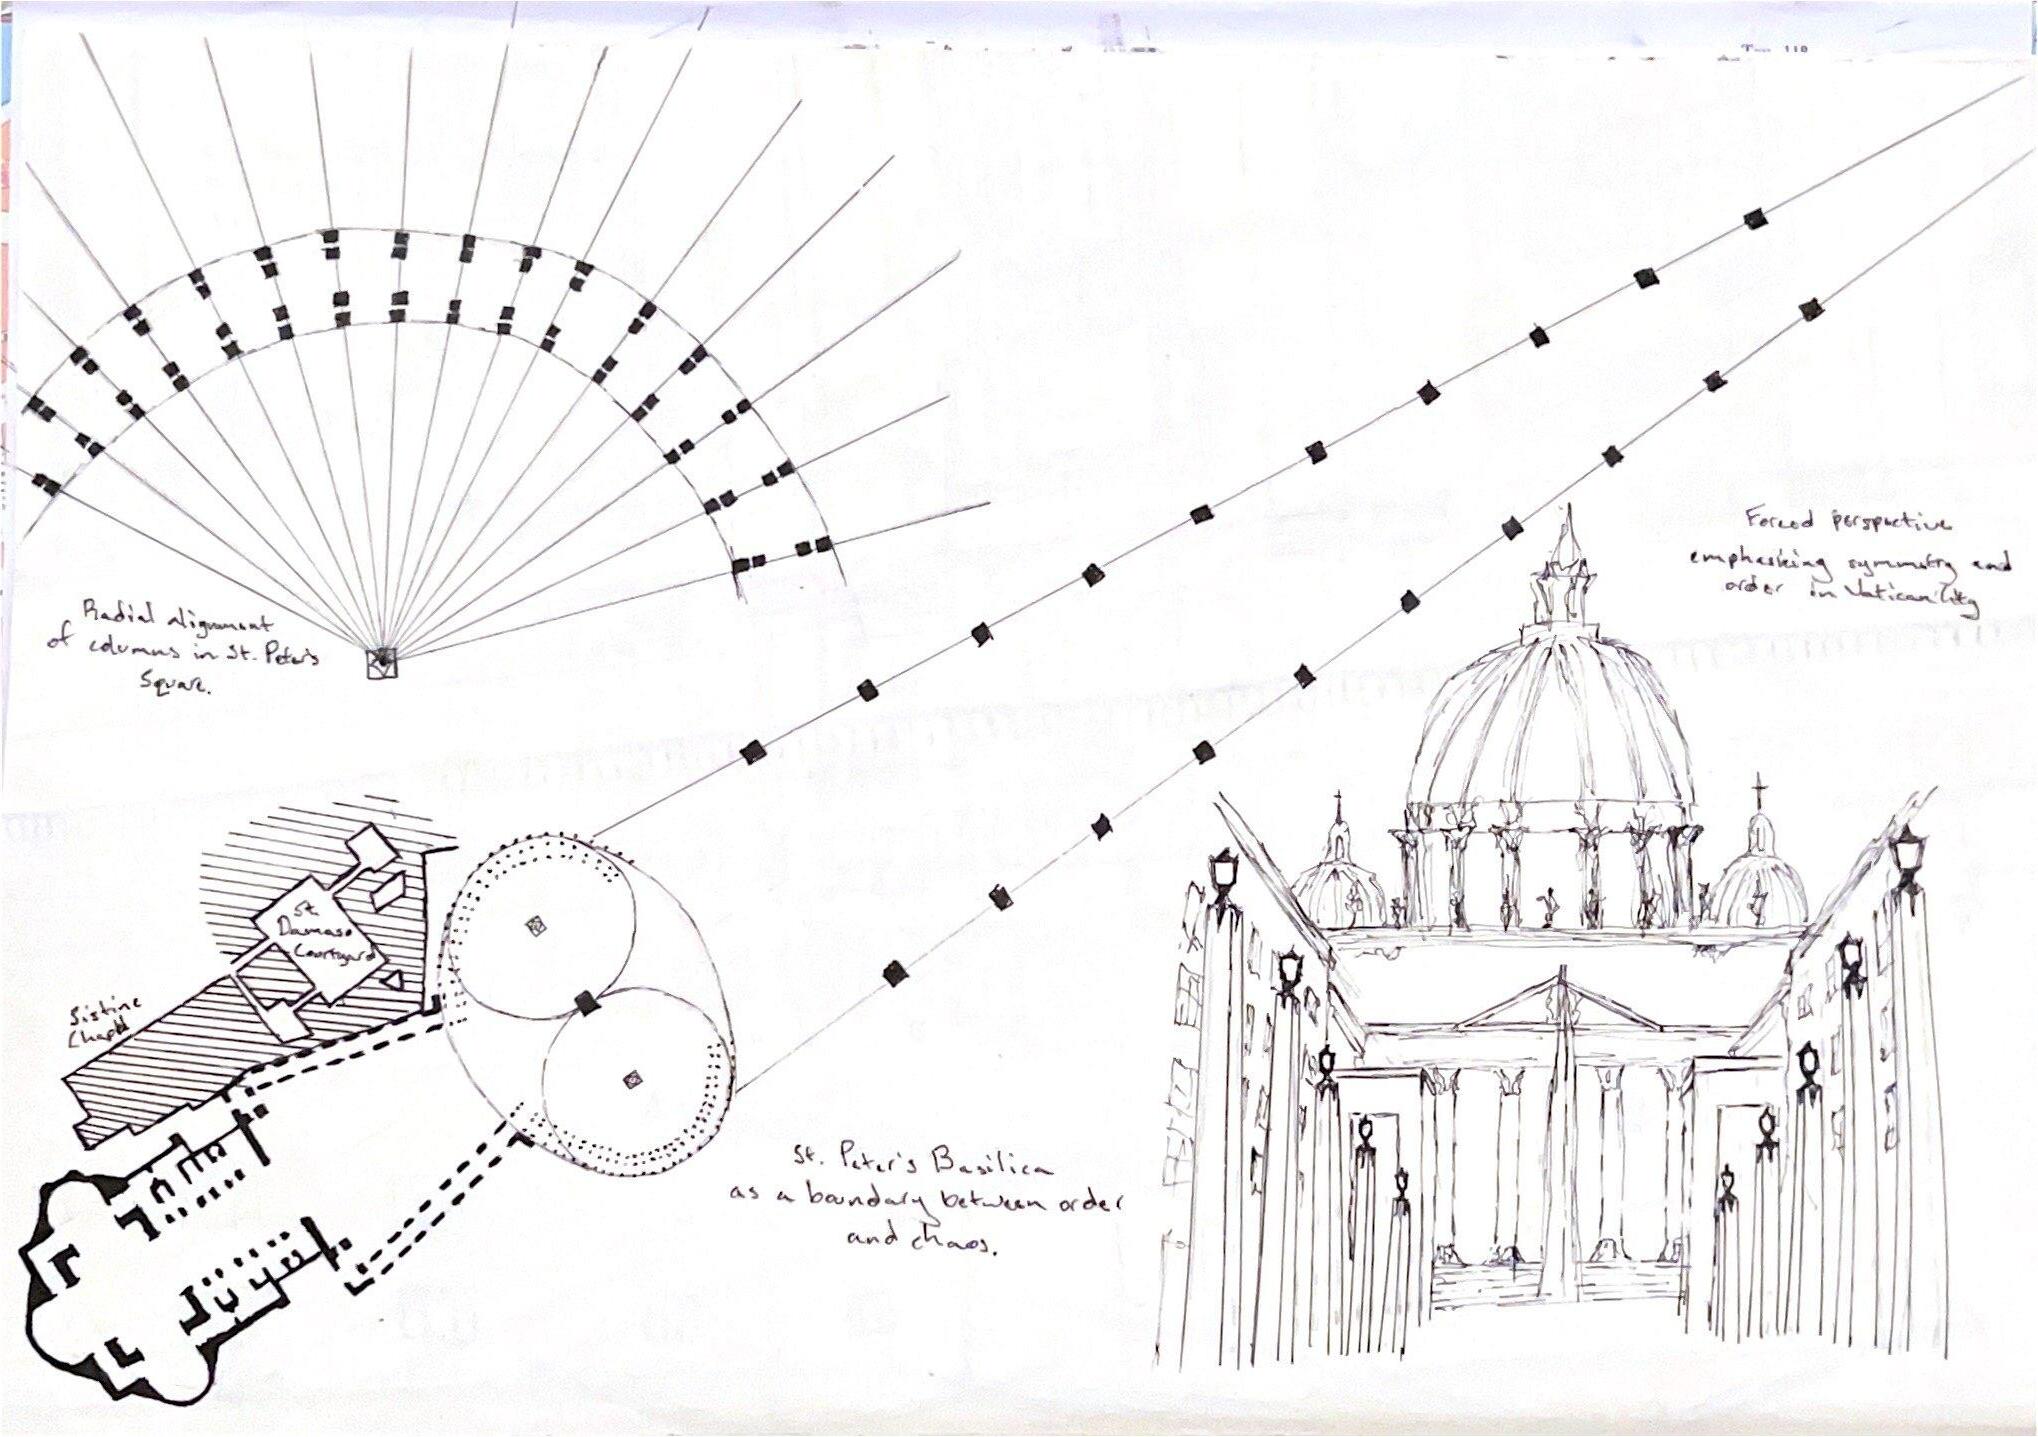 Radial alignment
of columns in St. Peter's
Square.
Forced perspective
emphasising symmetry and
order in Vatican City
St.
Damaso
Courtyard
Sistine
Chapel
St. Peter's Basilica
as a boundary between order
and chaos.